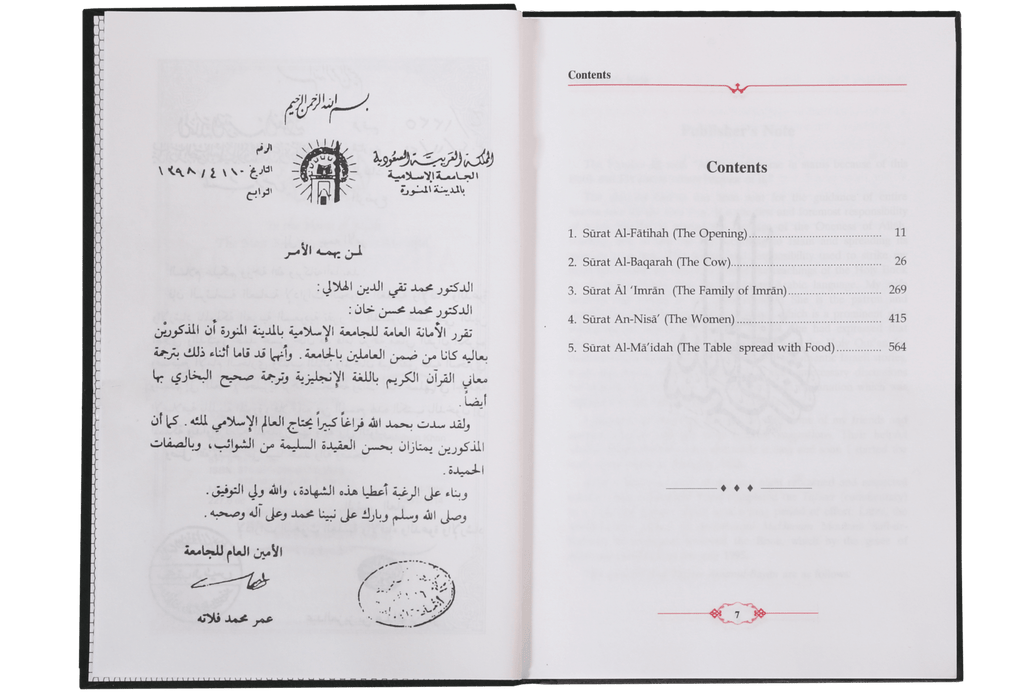 بسم الله الرحمن الرحيم
المملكة العربية السعودية
الجامعة الإسلامية
بالمدينة المنورة
الرقم
التاريخ ١٣٩٨/٤/١٠
التوابع
لمن يهمه الأمر
الدكتور محمد تقي الدين الهلالي :
الدكتور محمد محسن خان :
تقرر الأمانة العامة للجامعة الإسلامية بالمدينة المنورة أن المذكورين
بعاليه كانا من ضمن العاملين بالجامعة . وأنهما قد قاما أثناء ذلك بترجمة
معاني القرآن الكريم باللغة الإنجليزية وترجمة صحيح البخاري بها
أيضاً .
ولقد سدت بحمد الله فراغاً كبيراً يحتاج العالم الإسلامي لملئه . كما أن
المذكورين يمتازان بحسن العقيدة السليمة من الشوائب ، وبالصفات
الحميدة .
وبناء على الرغبة أعطيا هذه الشهادة ، والله ولي التوفيق .
وصلى الله وسلم وبارك على نبينا محمد وعلى آله وصحبه .
الأمين العام للجامعة
عمر محمد فلاته
Contents
Contents
1. Sūrat Al-Fātihah (The Opening)........................................ 11
2. Sūrat Al-Baqarah (The Cow)............................................. 26
3. Sūrat Āl 'Imrān (The Family of Imrān)............................ 269
4. Sūrat An-Nisā' (The Women)............................................ 415
5. Sūrat Al-Mā'idah (The Table spread with Food).............. 564
7